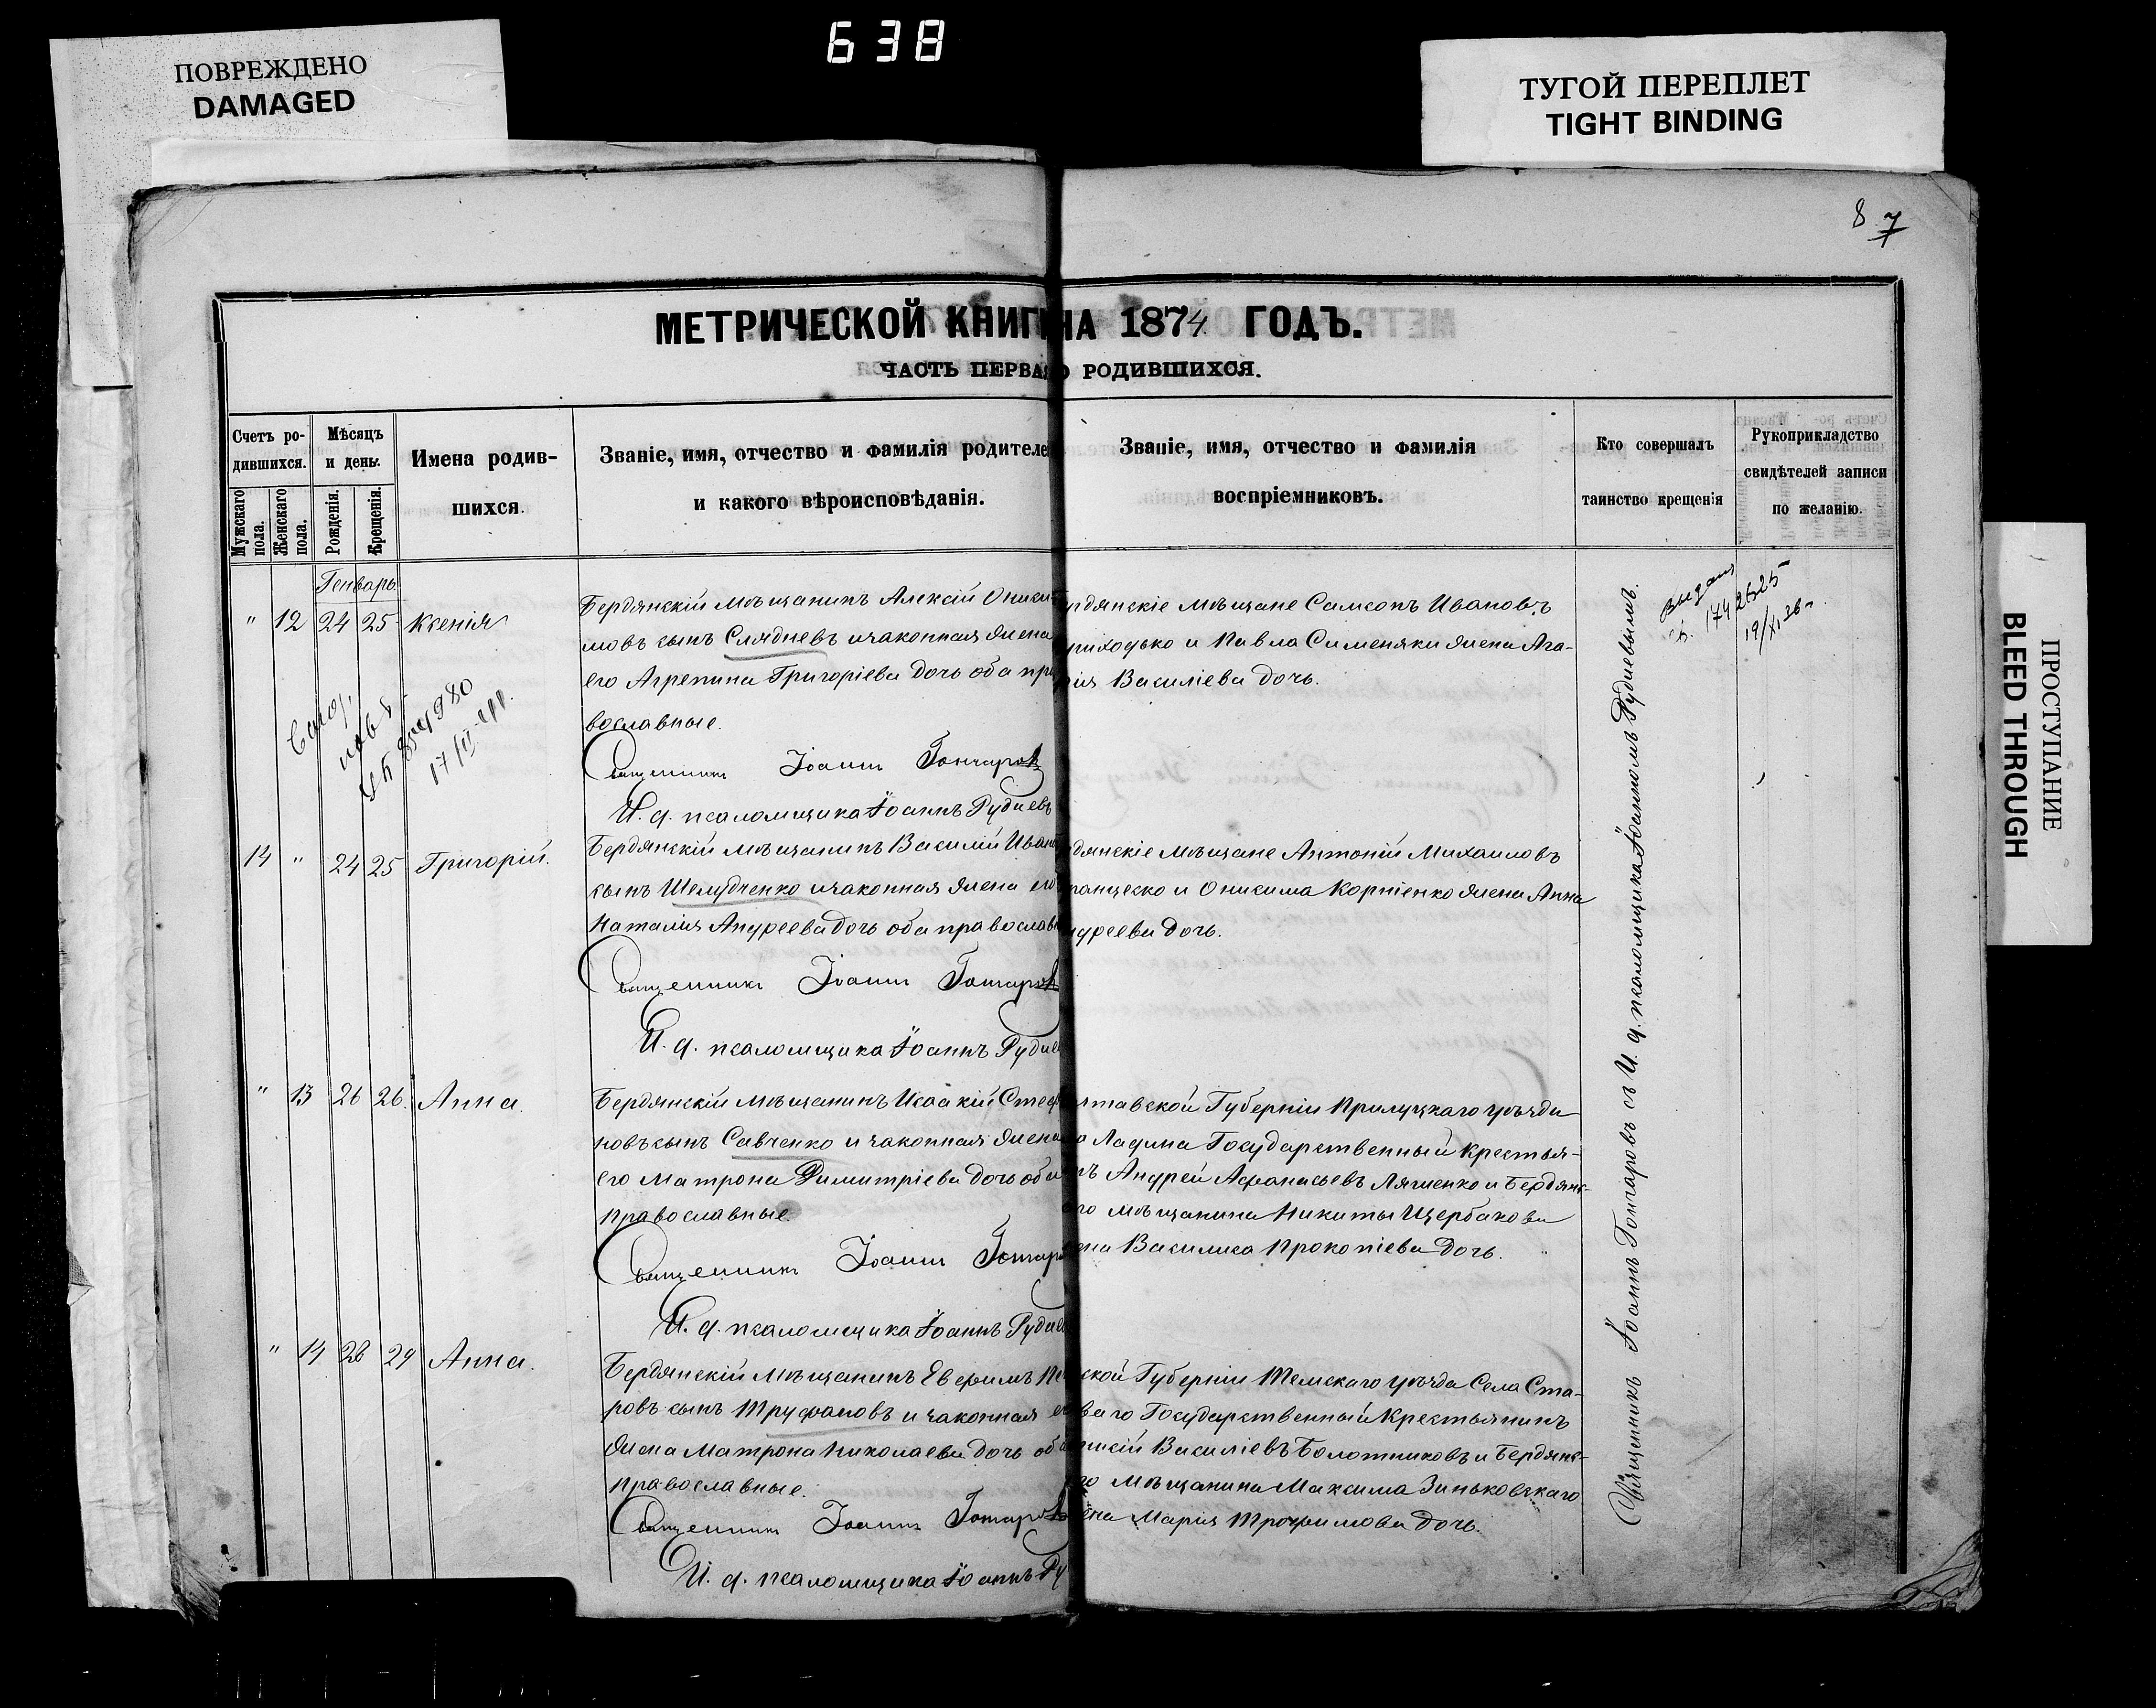 638
ПОВРЕЖДЕНО
DAMAGED
ТУГОЙ ПЕРЕПЛЕТ
TIGHT BINDING
8 7
МЕТРИЧЕСКОЙ КНИГИ НА 1874 ГОДЪ.
ЧАСТЬ ПЕРВАЯ О РОДИВШИХСЯ.
Счетъ ро-
дившихся.
Мужскаго пола.
Женскаго пола.
Мѣсяцъ
и день.
Рожденія.
Крещенія.
Имена родив-
шихся.
Званіе, имя, отчество и фамилія родителе
и какого вѣроисповѣданія.
Званіе, имя, отчество и фамилія
воспріемниковъ.
Кто совершалъ
таинство крещенія
Рукоприкладство
свидѣтелей записи
по желанію.
Генварь.
" 12 24 25 Ксенія
Бердянскій мѣщанинъ Алексій Ониси
мовъ сынъ Слядневъ и законная жена
его Агрепина Григоріева дочь оба пра
вославные.
Священникъ Іоаннъ Гончаровъ
И. д. псаломщика Іоаннъ Рудневъ
рдянскіе мѣщане Самсонъ Ивановъ
риходько и Павла Сименяки жена Ага-
ія Василіева дочь.
17/II
выдана
174 2625
19/XI 26
14 " 24 25 Григорій.
Бердянскій мѣщанинъ Василій Иван
сынъ Шелудченко и законная жена его
Наталія Андреева дочь оба православн
Священникъ Іоаннъ Гончаровъ
И. д. псаломщика Іоаннъ Рудне
дянскіе мѣщане Антоній Михаиловъ
ранцеско и Онисима Корніенко жена Анна
ндреева дочь.
" 13 26 26. Анна.
Бердянскій мѣщанинъ Исаакій Стеф
новъ сынъ Савченко и законная жена
его Матрона Димитріева дочь оба
православные.
Священникъ Іоаннъ Гончаро
И. д. псаломщика Іоаннъ Рудне
лтавской Губерніи Прилуцкаго уѣзда
Ладина Государственный крестья-
нъ Андрей Афанасьевъ Ляшенко и Бердянс-
го мѣщанина Никиты Щербакова
ена Василиса Прокопіева дочь.
" 14 28 29 Анна.
Бердянскій мѣщанинъ Евфимъ Пе
ровъ сынъ Труфановъ и законная ег
жена Матрона Николаева дочь оба
православные.
Священникъ Іоаннъ Гончаровъ
И. д. псаломщика Іоаннъ Ру
ской Губерніи Темскаго уѣзда Села Ста-
ваго Государственный Крестьянинъ
Василіевъ Болотниковъ и Бердянс-
го мѣщанина Максима Зиньковскаго
ена Марія Трофимова дочь.
Священникъ Іоаннъ Гончаровъ съ И. д. псаломщика Іоанномъ Рудневымъ.
ПРОСТУПАНИЕ
BLEED THROUGH